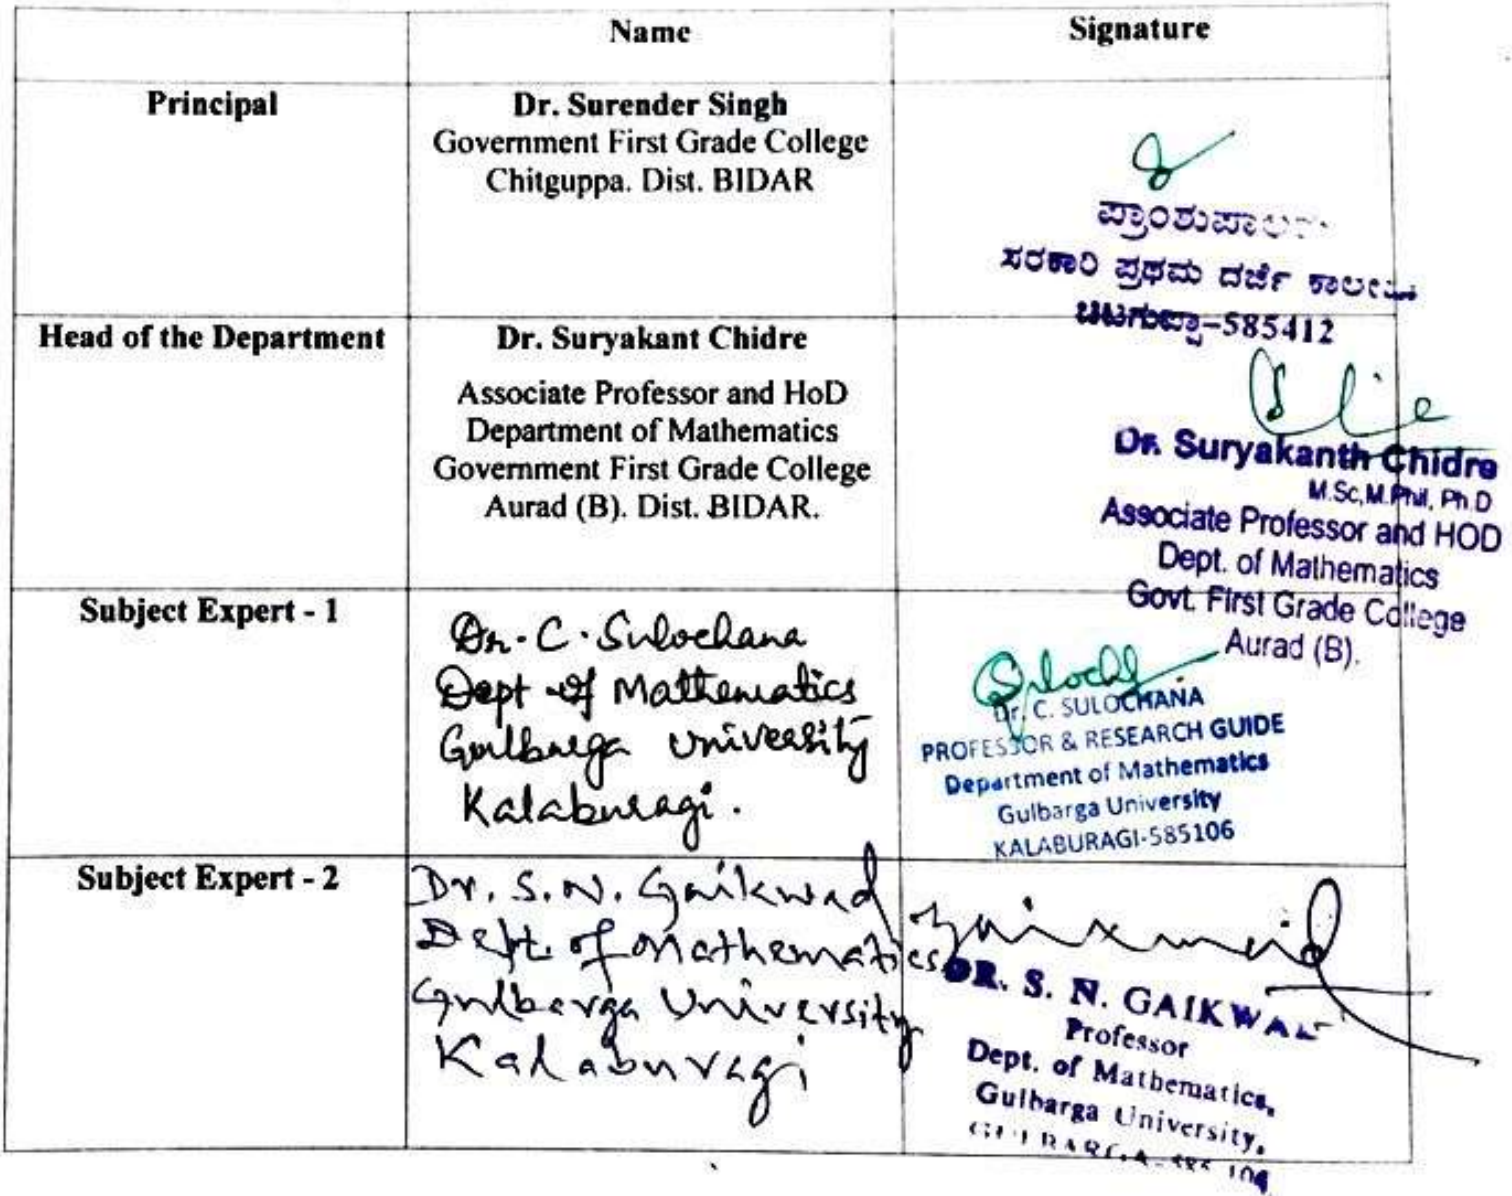 Name
Signature
Principal
Dr. Surender Singh
Government First Grade College
Chitguppa. Dist. BIDAR
ಸರಕಾರಿ ಪ್ರಥಮ ದರ್ಜೆ
-585412
Head of the Department
Dr. Suryakant Chidre
Associate Professor and HoD
Department of Mathematics
Government First Grade College
Aurad (B). Dist. BIDAR.
Dr. Suryakanth Chidre
M.Sc,M.Phil, Ph.D
Associate Professor and HOD
Dept. of Mathematics
Govt. First Grade College
Aurad (B).
Subject Expert - 1
Dr. C. Sulochana
Dept of Mathematics
Gulbarga University
Kalaburagi.
Dr. C. SULOCHANA
PROFESSOR & RESEARCH GUIDE
Department of Mathematics
Gulbarga University
KALABURAGI-585106
Subject Expert - 2
Dr. S. N. Gaikwad
Dept. of Mathematics
Gulbarga University
Kalaburagi
DR. S. N. GAIKWAD
Professor
Dept. of Mathematics,
Gulbarga University,